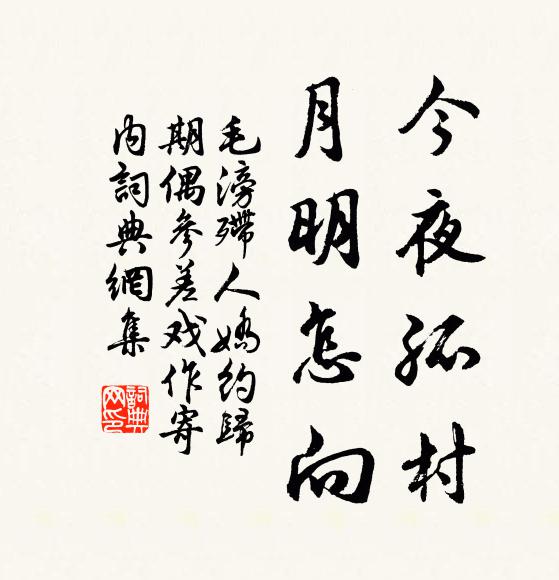 今夜孤村
月明怎向
毛滂殢人嬌約歸
期偶參差戏作寄
内詞典網集
詞典网印